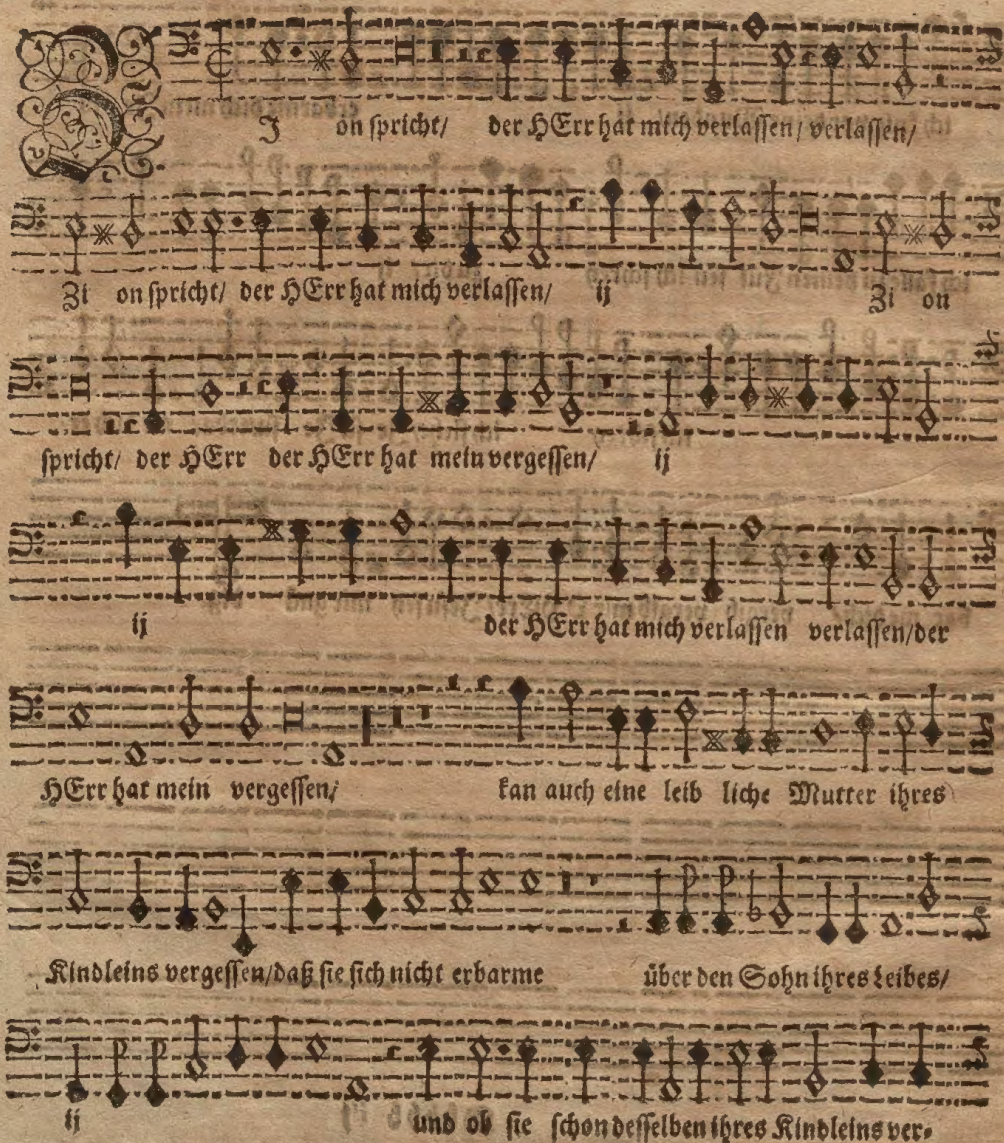 ZJ on spricht/ der HErr hat mich verlassen/ verlassen/
Zi on spricht/ der HErr hat mich verlassen/ ij Zi on
spricht/ der HErr der HErr hat mein vergessen/ ij
ij der HErr hat mich verlassen verlassen/ der
HErr hat mein vergessen/ kan auch eine leib liche Mutter ihres
Kindleins vergessen/ daß sie sich nicht erbarme über den Sohn ihres Leibes/
ij und ob sie schon desselben ihres Kindleins ver-